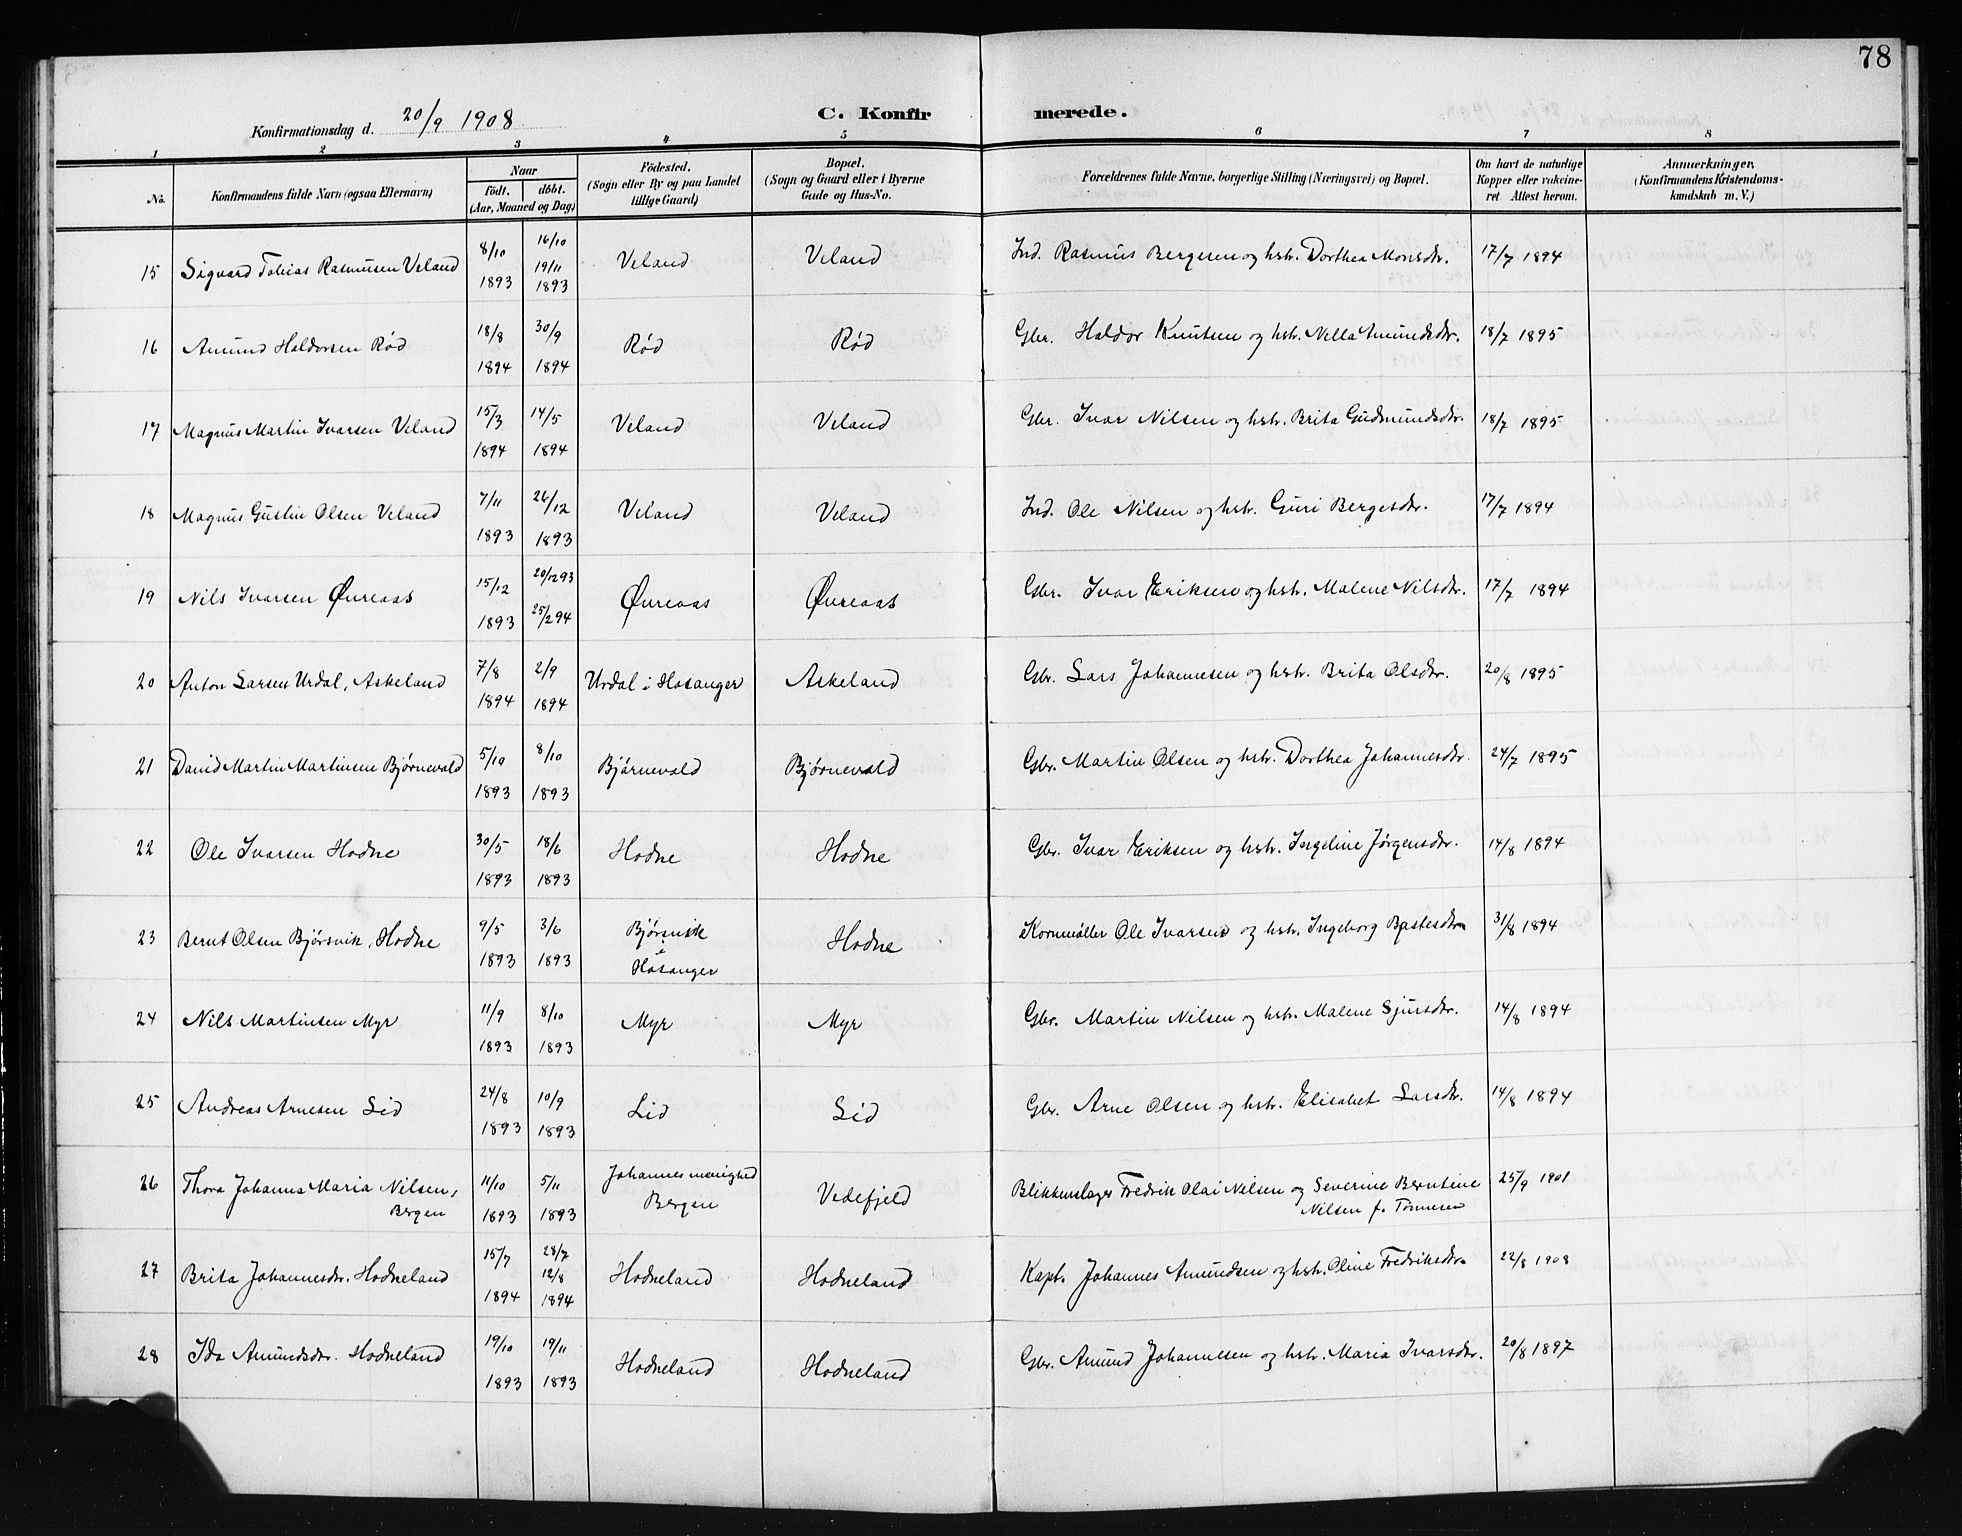 78
Konfirmationsdag d. 20/9 1908
C. Konfirmerede.
1 2 3 4 5 6 7 8
No. | Konfirmandens fulde Navn (ogsaa Efternavn) | Naar født. døbt. (Aar, Maaned og Dag) | Fødested. (Sogn eller By og paa Landet tillige Gaard) | Bopæl. (Sogn og Gaard eller i Byerne Gade og Hus-No. | Forældrenes fulde Navne, borgerlige Stilling (Næringsvei) og Bopæl. | Om havt de naturlige Kopper eller vakcineret Attest herom. | Anmærkninger, (Konfirmandens Kristendomskundskab m. V.)
15 | Sigvard Tobias Rasmusen Veland | 8/10 1893 | 16/10 19/11 1893 | Veland | Veland | Ind. Rasmus Bergesen og hstr. Dorthea Monsdtr. | 17/7 1894
16 | Amund Haldorsen Rød | 18/8 1894 | 30/9 1894 | Rød | Rød | Gbr. Haldor Knutsen og hstr. Nilla Amundsdtr. | 18/7 1895
17 | Magnus Martin Ivarsen Veland | 15/3 1894 | 14/5 1894 | Veland | Veland | Gbr. Ivar Nilsen og hstr. Brita Gudmundsdtr. | 18/7 1895
18 | Magnus Gustin Olsen Veland | 7/11 1893 | 26/12 1893 | Veland | Veland | Ind. Ole Nilsen og hstr. Guri Bergesdtr. | 17/7 1894
19 | Nils Ivarsen Øvreaas | 15/12 1893 | 20/12 93 25/2 94 | Øvreaas | Øvreaas | Gbr. Ivar Eriksen og hstr. Malene Nilsdtr. | 17/7 1894
20 | Anton Larsen Urdal, Askeland | 7/8 1894 | 2/9 1894 | Urdal i Hosanger | Askeland | Gbr. Lars Johannesen og hstr. Brita Olsdtr. | 20/8 1895
21 | David Martin Martinsen Bjørnevald | 5/10 1893 | 8/10 1893 | Bjørnevald | Bjørnevald | Gbr. Martin Olsen og hstr. Dorthea Johannesdtr. | 24/7 1895
22 | Ole Ivarsen Hodne | 30/5 1893 | 18/6 1893 | Hodne | Hodne | Gbr. Ivar Eriksen og hstr. Ingeline Jørgensdtr. | 14/8 1894
23 | Bernt Olsen Bjørsvik, Hodne | 9/5 1893 | 3/6 1893 | Bjørsvik i Hosanger | Hodne | Kornmøller Ole Ivarsen og hstr. Ingeborg | 31/8 1894
24 | Nils Martinsen Myr | 11/9 1893 | 8/10 1893 | Myr | Myr | Gbr. Martin Nilsen og hstr. Malene Sjursdtr. | 14/8 1894
25 | Andreas Arnesen Lid | 24/8 1893 | 10/9 1893 | Lid | Lid | Gbr. Arne Olsen og hstr. Elisabet Larsdtr. | 14/8 1894
26 | Thora Johanna Maria Nilsen, Bergen | 11/10 1893 | 5/11 1893 | Johannes menighed Bergen | Vedefjeld | Blikkenslager Fredrik Olai Nilsen og Severine Berntine Nilsen f. Tønnesen | 25/9 1901
27 | Brita Johannesdtr. Hodneland | 15/7 1894 | 28/7 12/8 1894 | Hodneland | Hodneland | Kapt. Johannes Amundsen og hstr. Oline Fredriksdtr. | 22/8 1908
28 | Ida Amundsdtr. Hodneland | 19/10 1893 | 19/11 1893 | Hodneland | Hodneland | Gbr. Amund Johannesen og hstr. Maria Ivarsdtr. | 20/8 1897